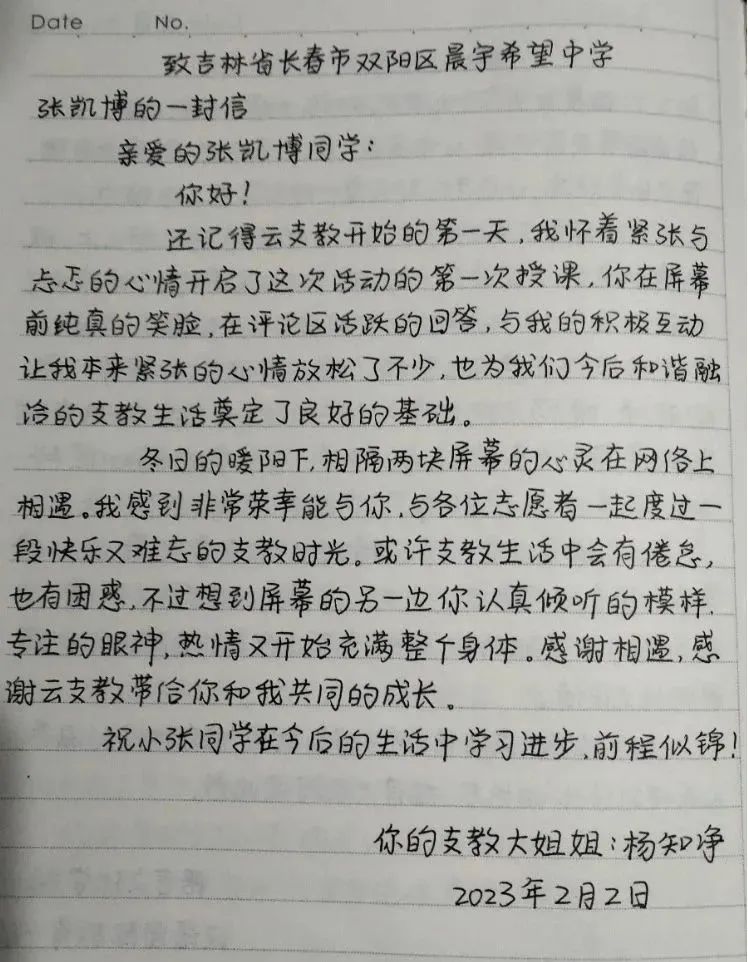 Date No.
致吉林省长春市双阳区晨宇希望中学
张凯博的一封信
亲爱的张凯博同学：
你好！
还记得云支教开始的第一天，我怀着紧张与
忐忑的心情开启了这次活动的第一次授课，你在屏幕
前纯真的笑脸，在评论区活跃的回答，与我的积极互动
让我本来紧张的心情放松了不少，也为我们今后和谐融
洽的支教生活奠定了良好的基础。
冬日的暖阳下，相隔两块屏幕的心灵在网络上
相遇。我感到非常荣幸能与你、与各位志愿者一起度过一
段快乐又难忘的支教时光。或许支教生活中会有倦怠，
也有困惑，不过想到屏幕的另一边你认真倾听的模样、
专注的眼神，热情又开始充满整个身体。感谢相遇，感
谢云支教带给你和我共同的成长。
祝小张同学在今后的生活中学习进步、前程似锦！
你的支教大姐姐：杨知净
2023年2月2日